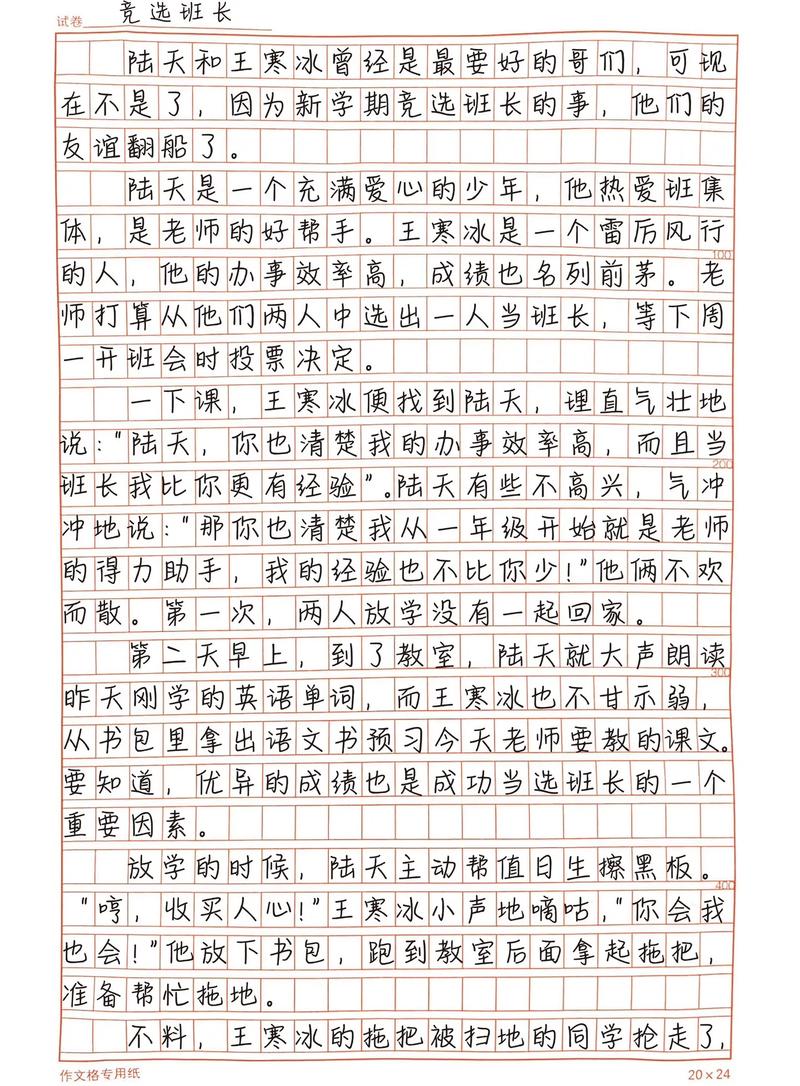 试卷 竞选班长
陆天和王寒冰曾经是最要好的哥们，可现
在不是了，因为新学期竞选班长的事，他们的
友谊翻船了。
陆天是一个充满爱心的少年，他热爱班集
体，是老师的好帮手。王寒冰是一个雷厉风行
100
的人，他的办事效率高，成绩也名列前茅。老
师打算从他们两人中选出一人当班长，等下周
一开班会时投票决定。
一下课，王寒冰便找到陆天，理直气壮地
说："陆天，你也清楚我的办事效率高，而且当
200
班长我比你更有经验"。陆天有些不高兴，气冲
冲地说："那你也清楚我从一年级开始就是老师
的得力助手，我的经验也不比你少！"他俩不欢
而散。第一次，两人放学没有一起回家。
第二天早上，到了教室，陆天就大声朗读
300
昨天刚学的英语单词，而王寒冰也不甘示弱，
从书包里拿出语文书预习今天老师要教的课文。
要知道，优异的成绩也是成功当选班长的一个
重要因素。
放学的时候，陆天主动帮值日生擦黑板。
400
"哼，收买人心！"王寒冰小声地嘀咕，"你会我
也会！"他放下书包，跑到教室后面拿起拖把，
准备帮忙拖地。
不料，王寒冰的拖把被扫地的同学抢走了，
作文格专用纸 20×24